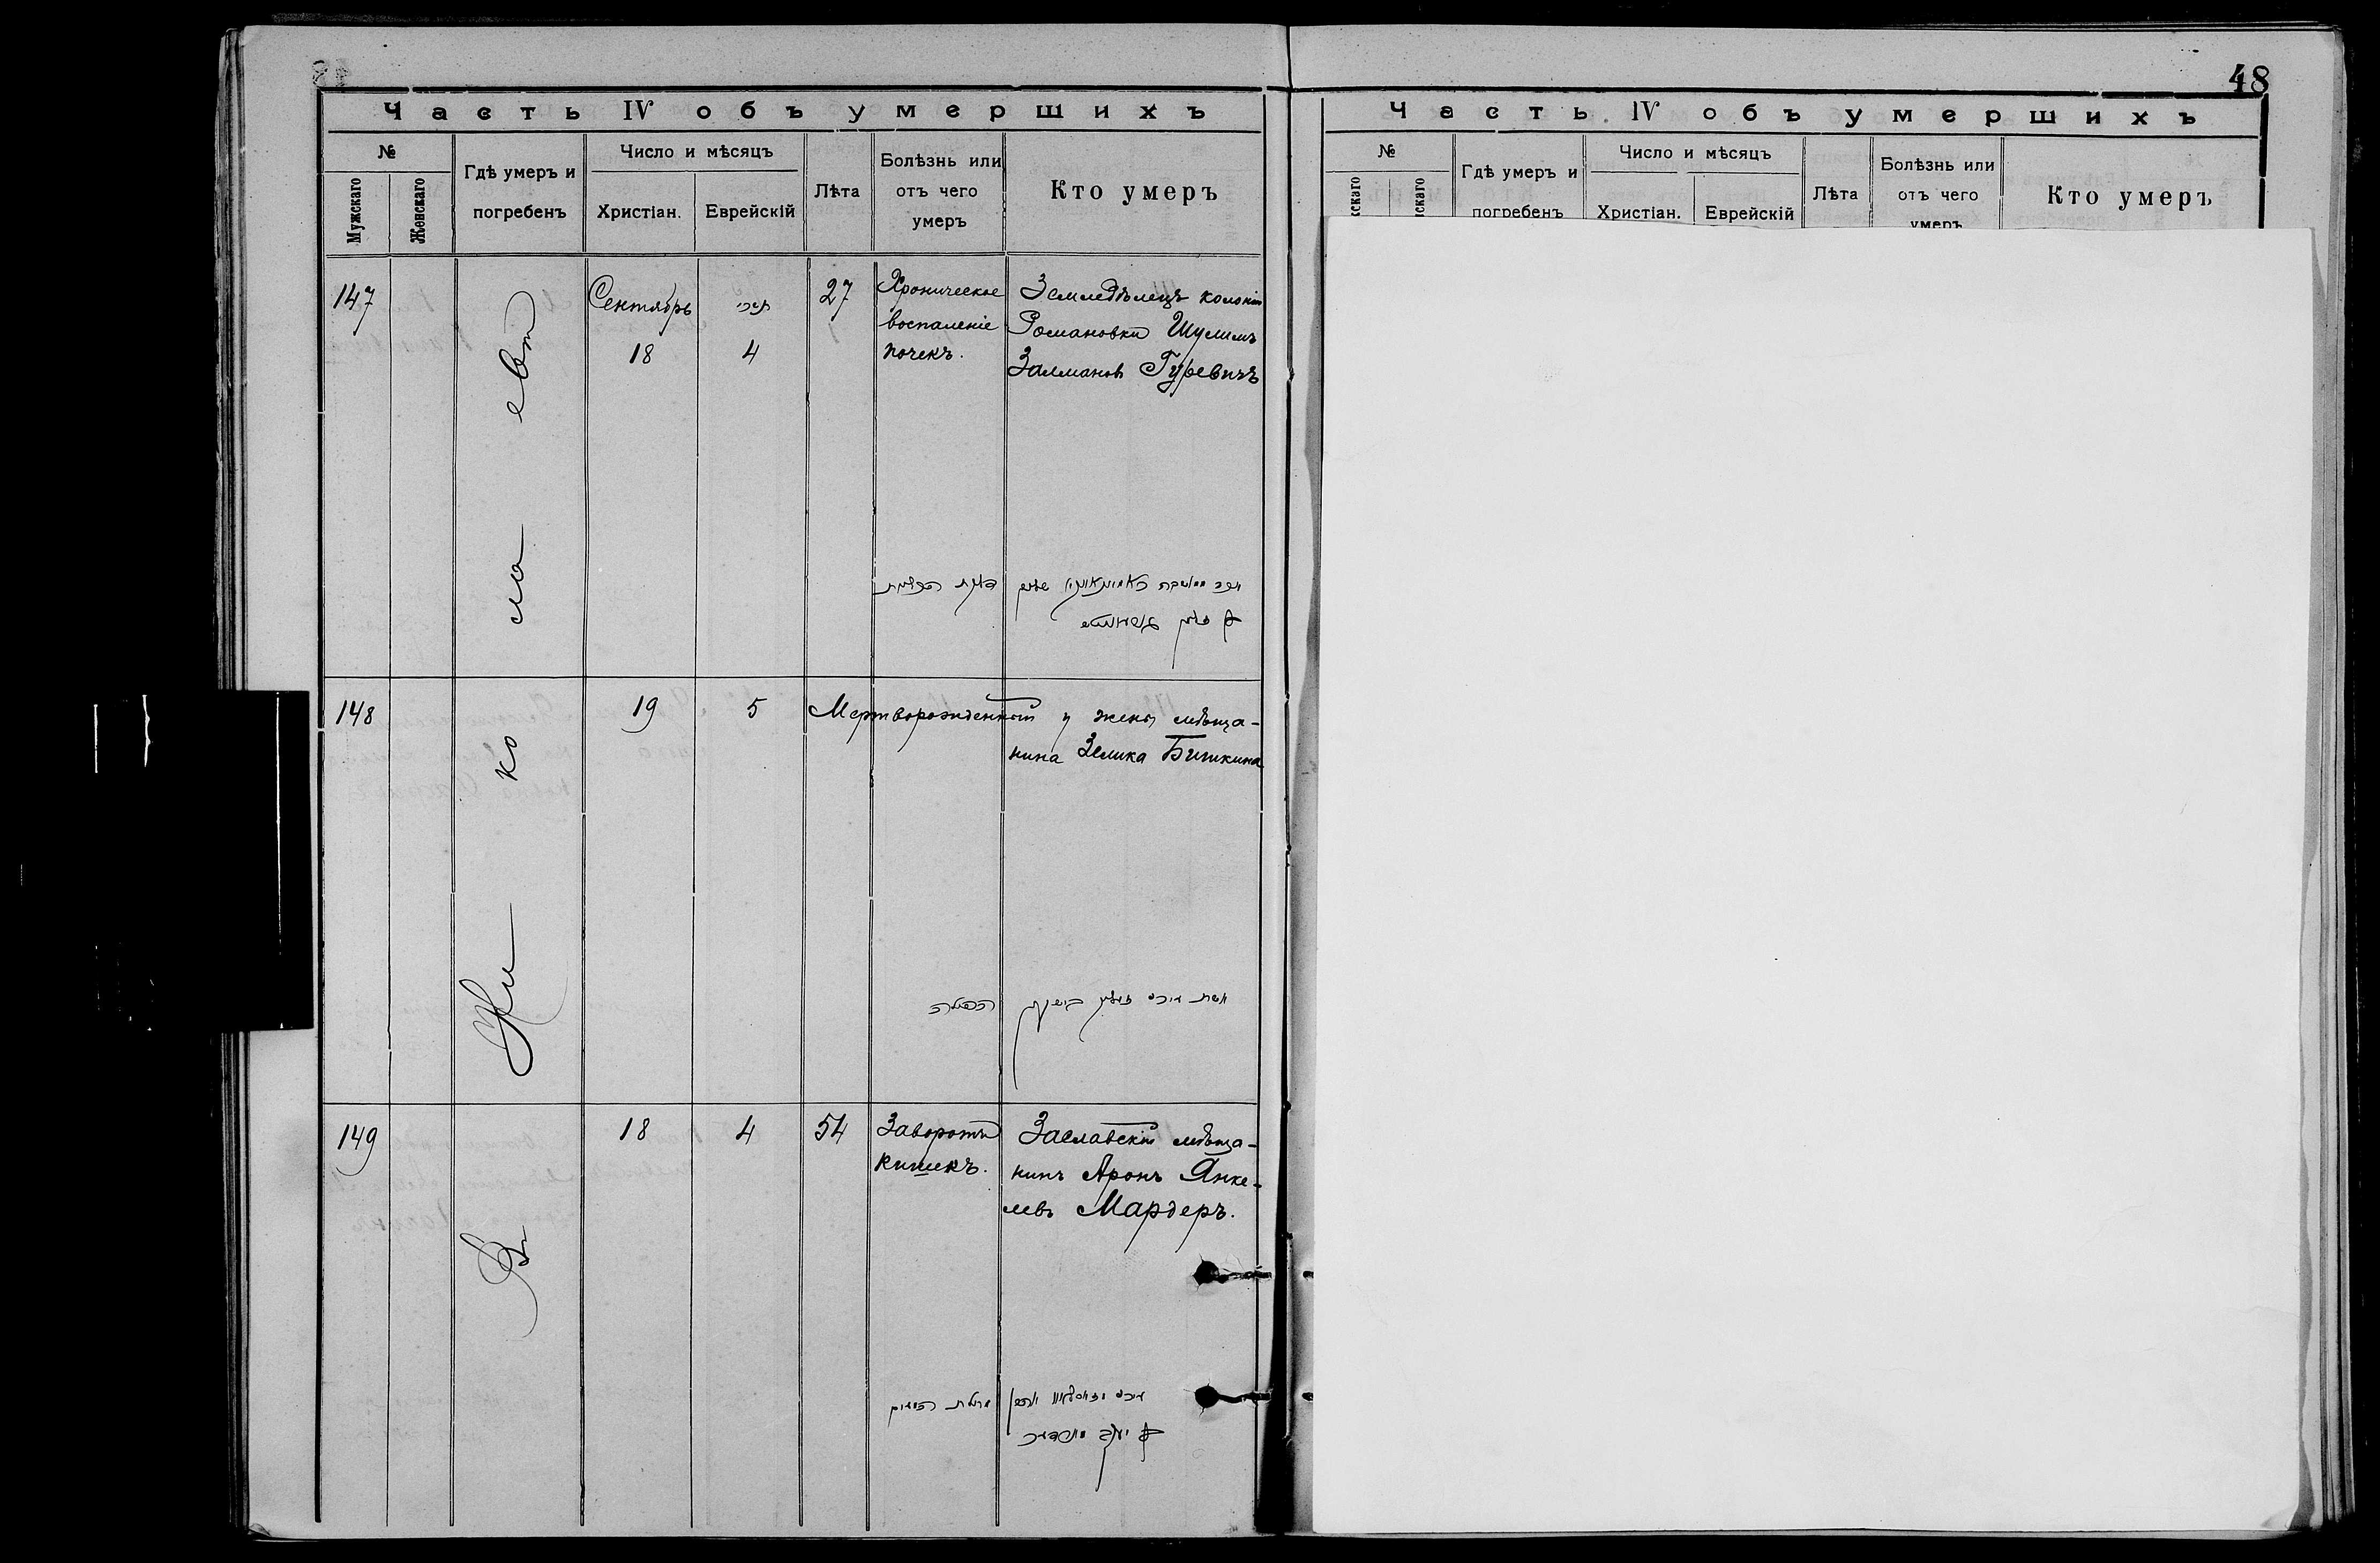 48
Часть IV объ умершихъ
№
Мужскаго
Женскаго
Гдѣ умеръ и
погребенъ
Число и мѣсяцъ
Христіан.
Еврейскій
Лѣта
Болѣзнь или
отъ чего
умеръ
Кто умеръ
Въ Николаевѣ
147
Сентябрь
18
תשרי
4
27
Хроническое
воспаленіе
почекъ.
Земледѣлецъ колоніи
Романовки Шулимъ
Залмановъ Гуревичъ
148
19
5
Мертворожденный у жены мѣща-
нина Зелика Бишкина
149
18
4
54
Заворотъ
кишекъ.
Заславскій мѣща-
нинъ Аронъ Янке-
левъ Мардеръ.
Часть IV объ умершихъ
№
скаго
скаго
Гдѣ умеръ и
погребенъ
Число и мѣсяцъ
Христіан.
Еврейскій
Лѣта
Болѣзнь или
отъ чего
умеръ
Кто умеръ